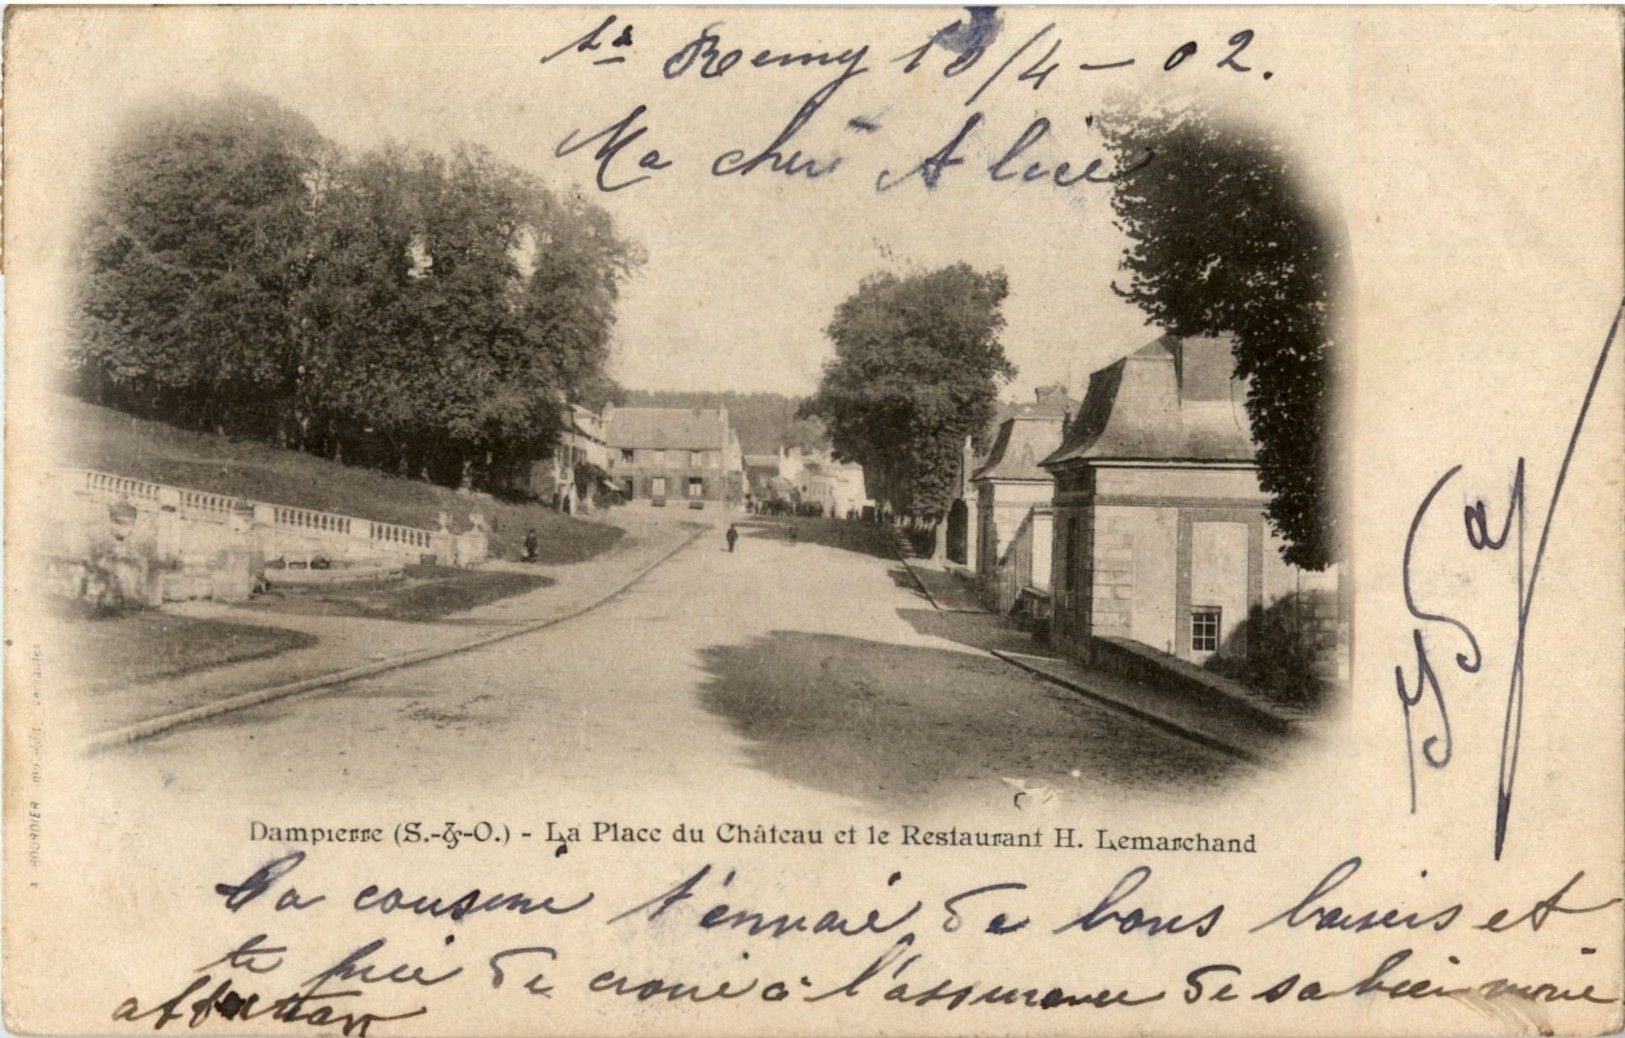 St Remy 18/4-02.
Ma chère Alice
Dampierre (S.-&-O.) - La Place du Château et le Restaurant H. Lemarchand
Ta cousine t'envoie de bons baisers et
te prie de croire à l'assurance de sa bien
affection
BOURDIER Versailles